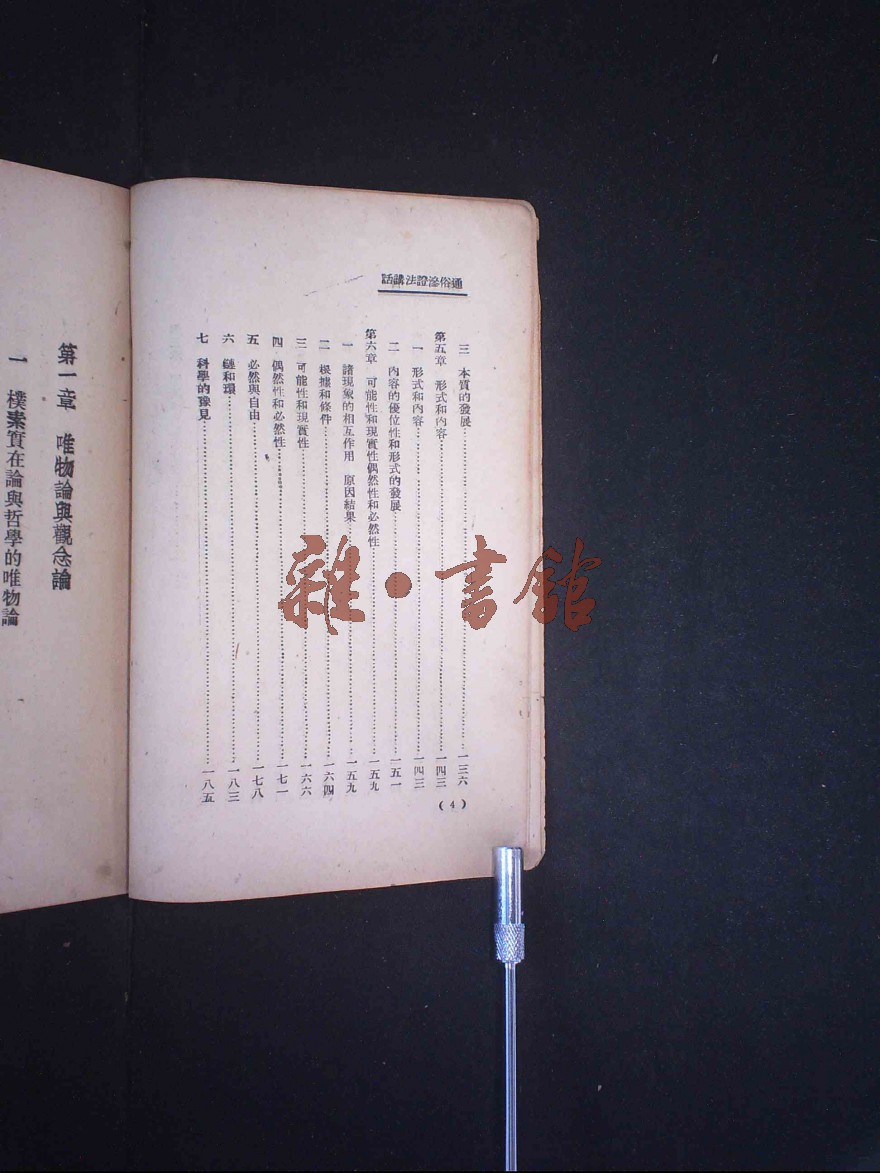 通俗辯證法講話
三　本質的發展……一三六
第五章　形式和內容……一四三
一　形式和內容……一四三
二　內容的優位性和形式的發展……一五一
第六章　可能性和現實性偶然性和必然性……一五九
一　諸現象的相互作用　原因結果……一五九
二　根據和條件……一六四
三　可能性和現實性……一六六
四　偶然性和必然性……一七一
五　必然與自由……一七八
六　鏈和環……一八三
七　科學的豫見……一八五
(4)
第一章　唯物論與觀念論
一　樸素實在論與哲學的唯物論
雜·書館